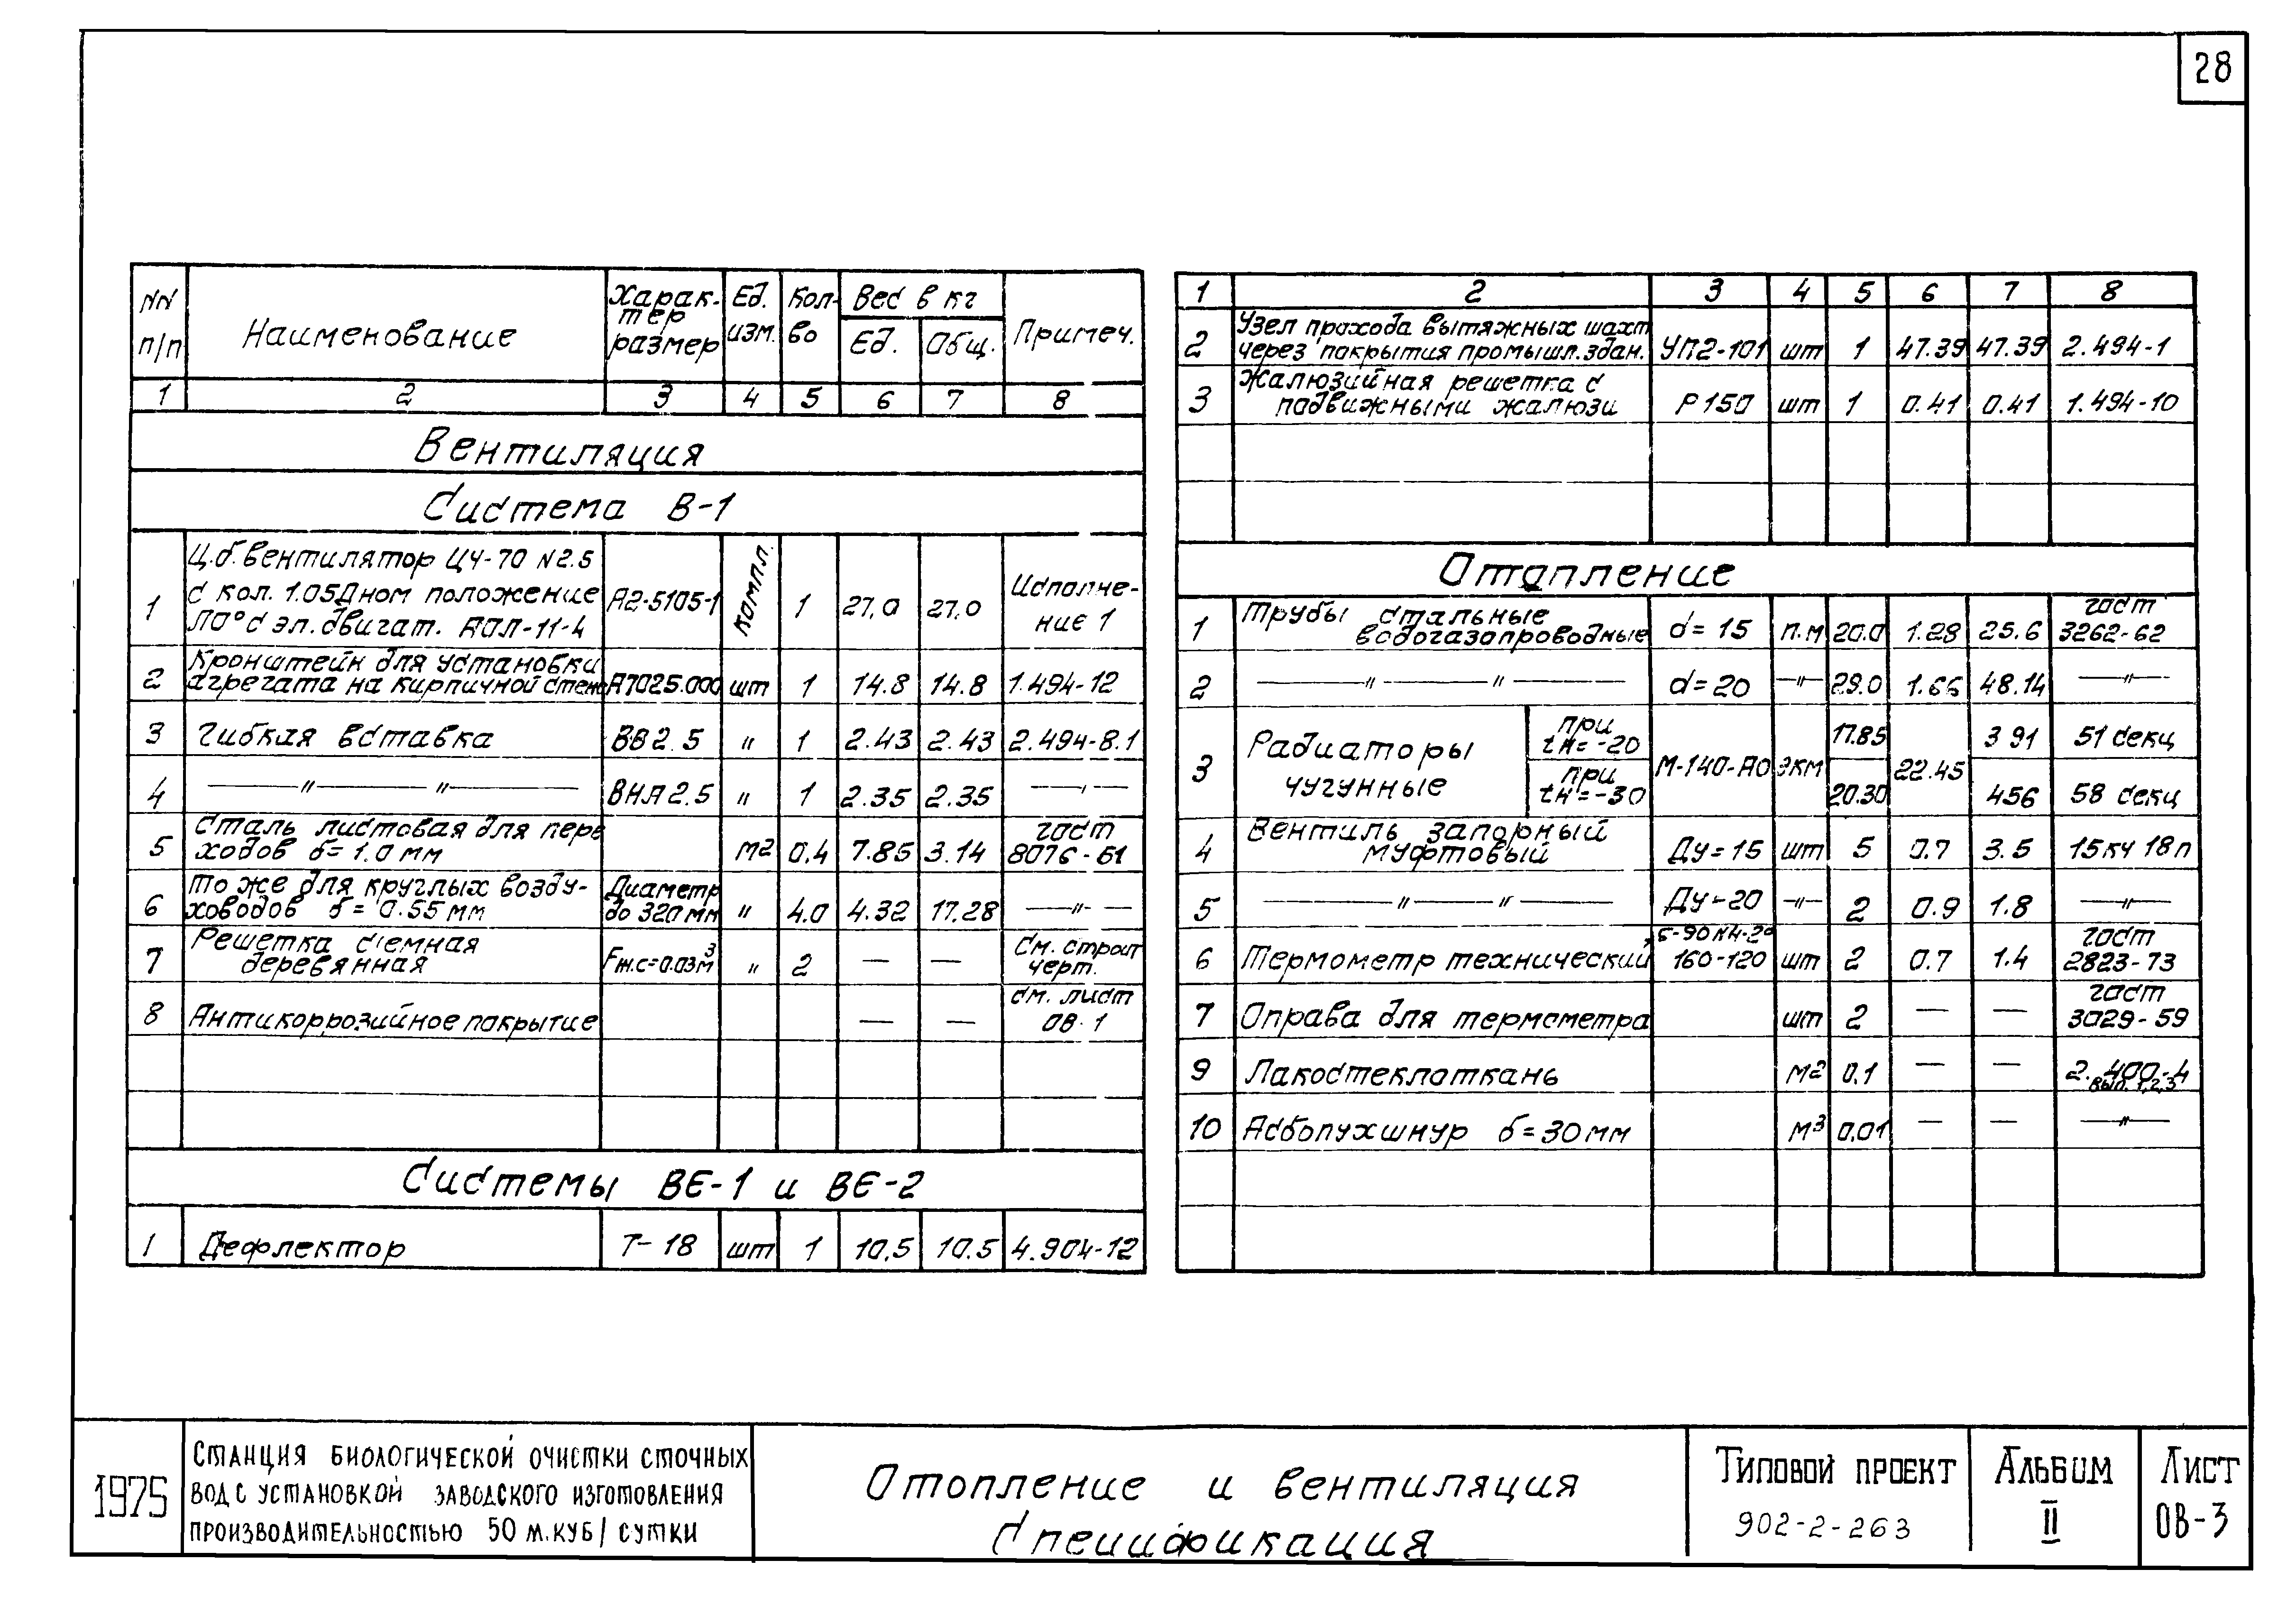 28
NN п/п Наименование Харак- тер размер Ед. изм. Кол- во Вес в кг Ед. Общ. Примеч.
1 2 3 4 5 6 7 8
Вентиляция
Система В-1
Ц.б. вентилятор Ц4-70 N2.5
1 с кол. 1.05Дном положение А2-5105-1 компл. 1 27,0 27,0 Исполне- ние 1
Л0° с эл. двигат. АОЛ-11-4
Кронштейн для установки
2 агрегата на кирпичной стене А7025.000 шт 1 14.8 14.8 1.494-12
3 Гибкая вставка ВВ2.5 " 1 2.43 2.43 2.494-8.1
4 —"—"— ВНА2.5 " 1 2.35 2.35 —"—
Сталь листовая для пере
5 ходов б=1.0мм м2 0,4 7.85 3.14 гост 8075-61
То же для круглых возду-
6 ховодов б=0.55мм Диаметр до 320мм " 4.0 4.32 17.28 —"—
Решетка с'емная
7 деревянная Fж.с=0.03м3 " 2 — — См. строит черт.
8 Антикоррозийное покрытие — — см. лист ОВ-1
Системы ВЕ-1 и ВЕ-2
1 Дефлектор Т-18 шт 1 10,5 10.5 4.904-12
1 2 3 4 5 6 7 8
Узел прохода вытяжных шахт
2 через покрытия промышл. здан. УП2-101 шт 1 47.39 47.39 2.494-1
Жалюзийная решетка с
3 подвижными жалюзи Р150 шт 1 0.41 0.41 1.494-10
Отопление
Трубы стальные
1 водогазопроводные d=15 п.м 20.0 1.28 25.6 гост 3262-62
2 —"—"— d=20 —"— 29.0 1.66 48.14 —"—
3 Радиаторы чугунные при tн=-20 М-140-АО экм 17.85 22.45 391 51 секц
при tн=-30 20.30 456 58 секц
Вентиль запорный
4 муфтовый Ду=15 шт 5 0.7 3.5 15кч 18п
5 —"—"— Ду-20 —"— 2 0.9 1.8 —"—
6 Термометр технический 160-120 шт 2 0.7 1.4 гост 2823-73
7 Оправа для термометра шт 2 — — гост 3029-59
9 Лакостеклоткань м2 0,1 — — 2.400-4 вып. 1,2,3
10 Асбопухшнур б=30мм м3 0,01 — — —"—
1975
Станция биологической очистки сточных
вод с установкой заводского изготовления
производительностью 50 м.куб/сутки
Отопление и вентиляция
Спецификация
Типовой проект
902-2-263
Альбом
II
Лист
ОВ-3